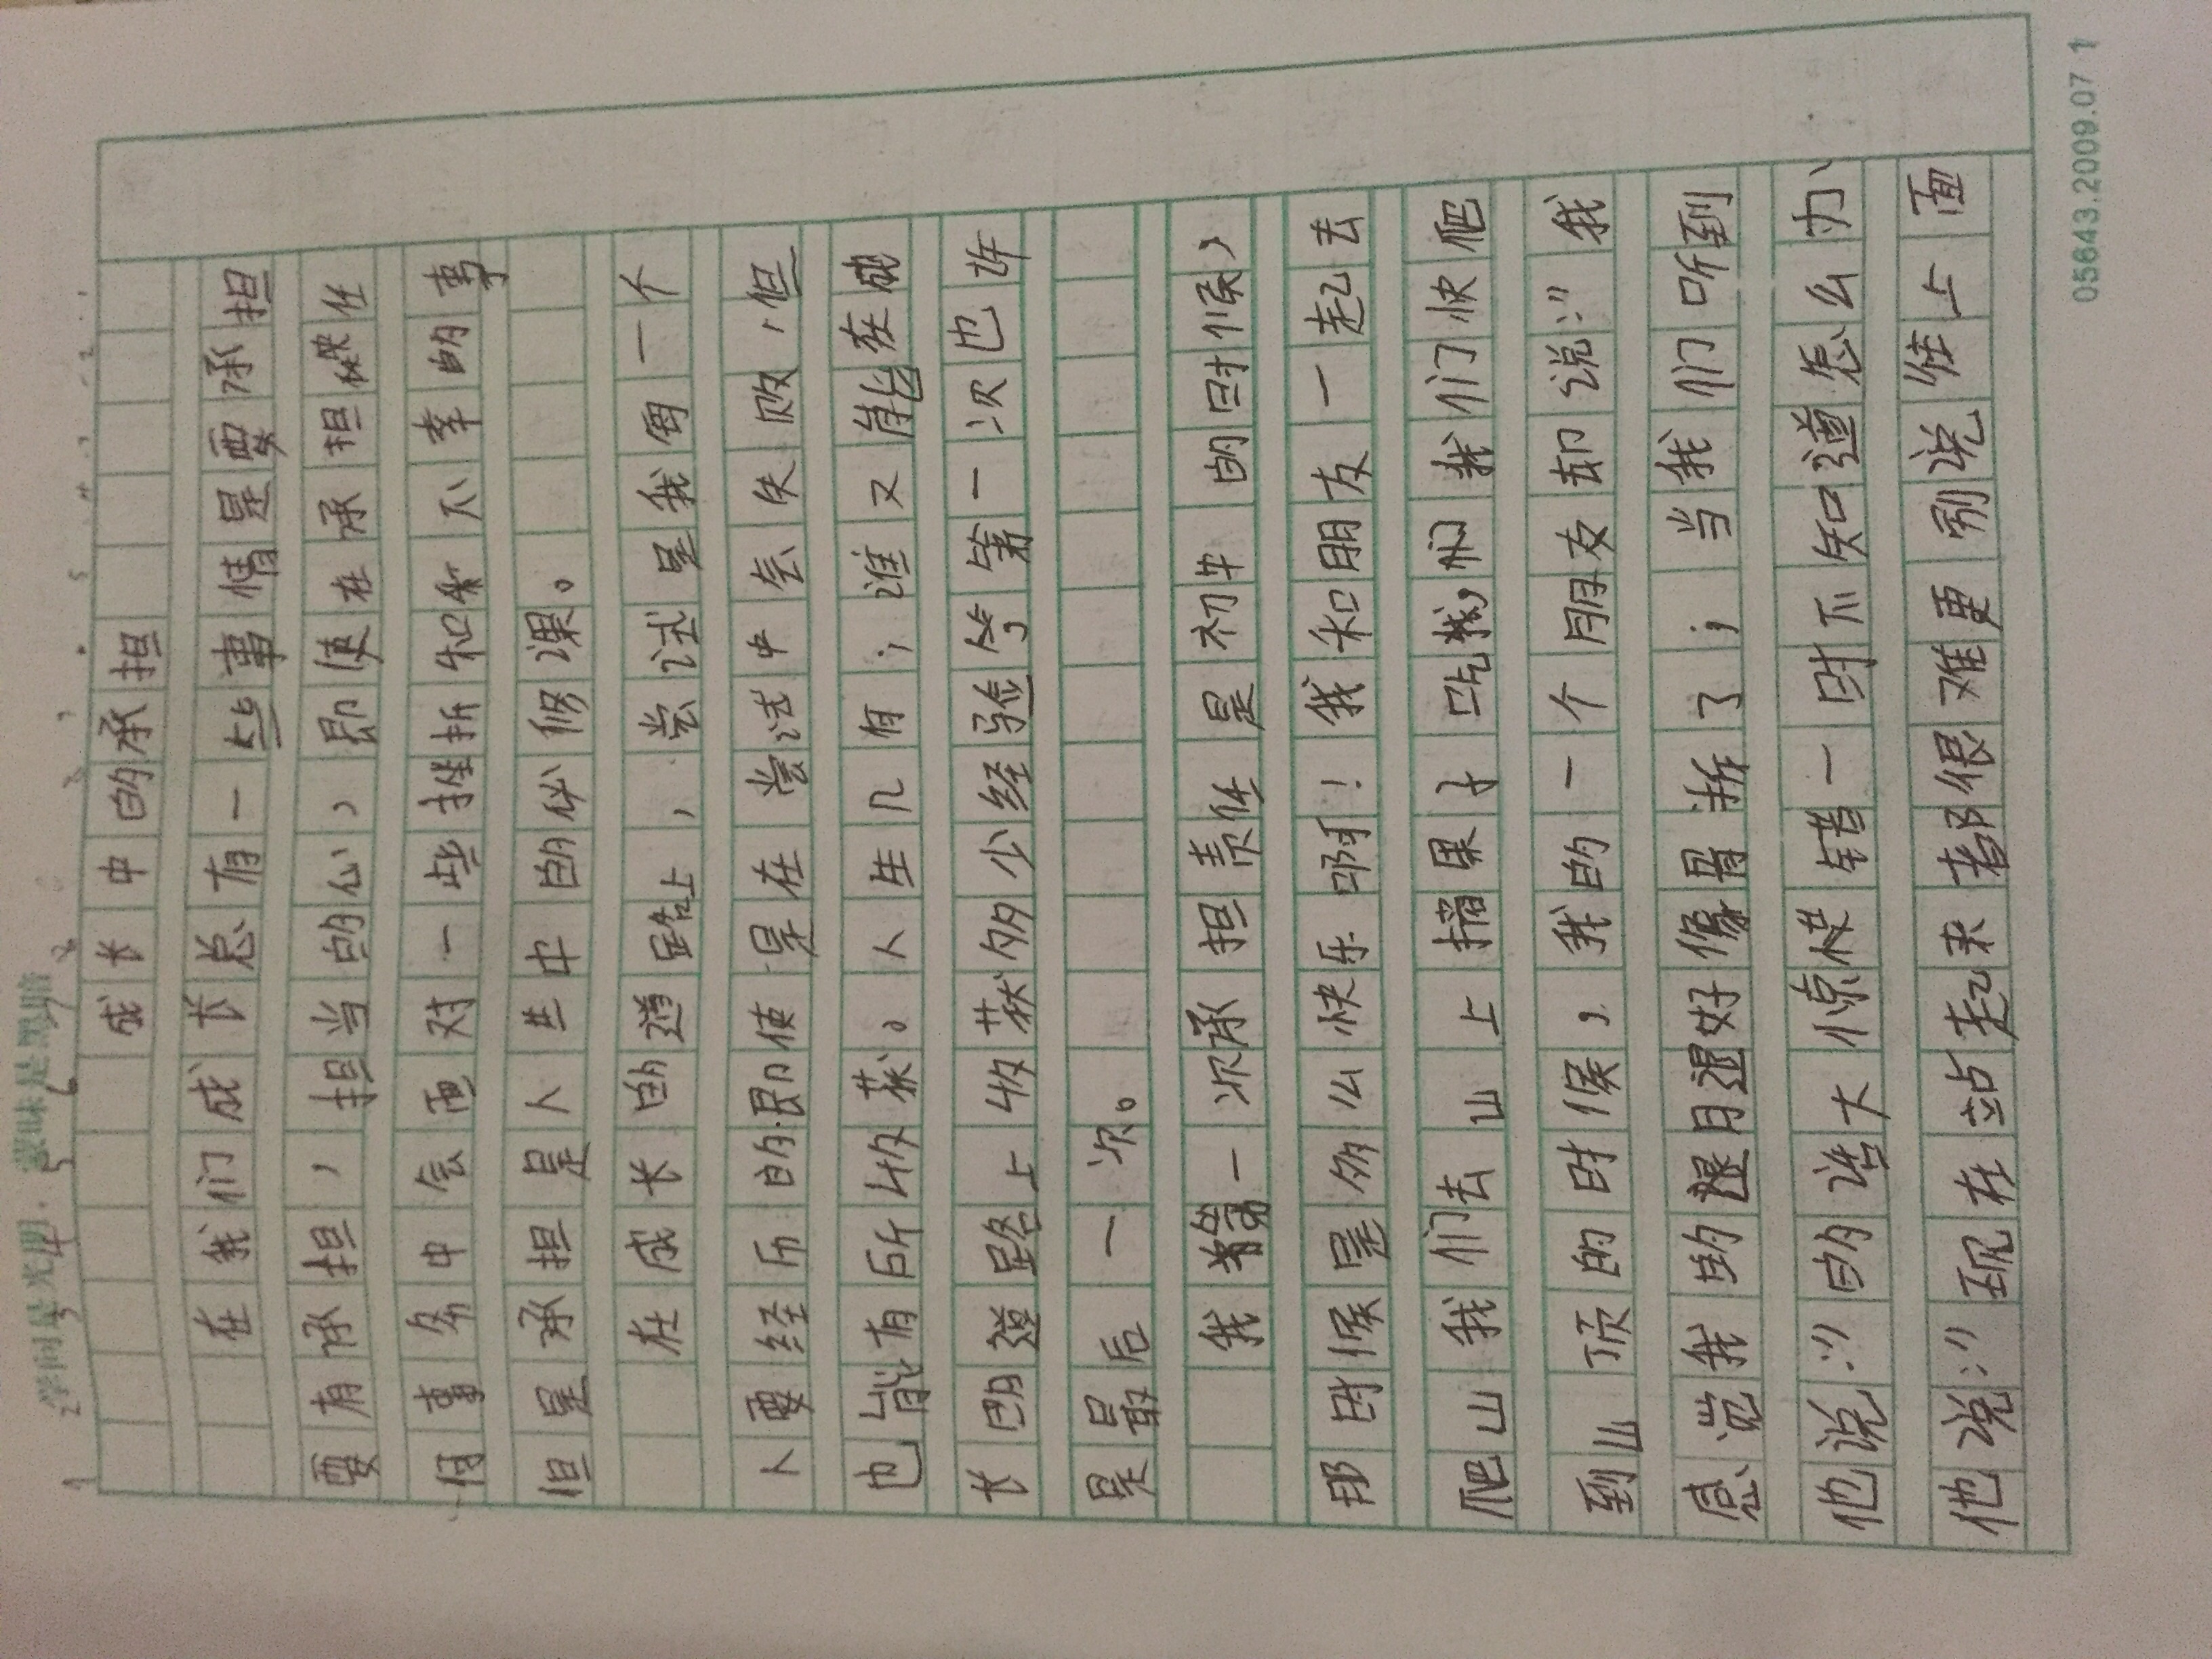 学问是光明，蒙昧是黑暗
成长中的承担
在我们成长总有一些事情是要承担
要有承担，担当的心，即使在承担
有事务中会面对一些挫折和不幸的事
但是承担是人生中的必修课。
在成长的道路上，尝试是我每一个
人要经历的.即使是在尝试中会失败，但
也能有所收获。人生几何；谁又能在成
长的道路上收获多少经验与第一次也许
是最后一次。
我第一次承担责任是初牛的时候，
那时候是多么快乐啊！我和朋友一起去
爬山我们去山上摘果子吃我们我们快爬
到山顶的时候，我的一个朋友却说：“我
感觉我的腿好像骨折了；当我们听到
他说：“的话大惊快错一时不知道怎么办、
他说：“现在站起来都很难更别说往上面
05643.2009.07 1